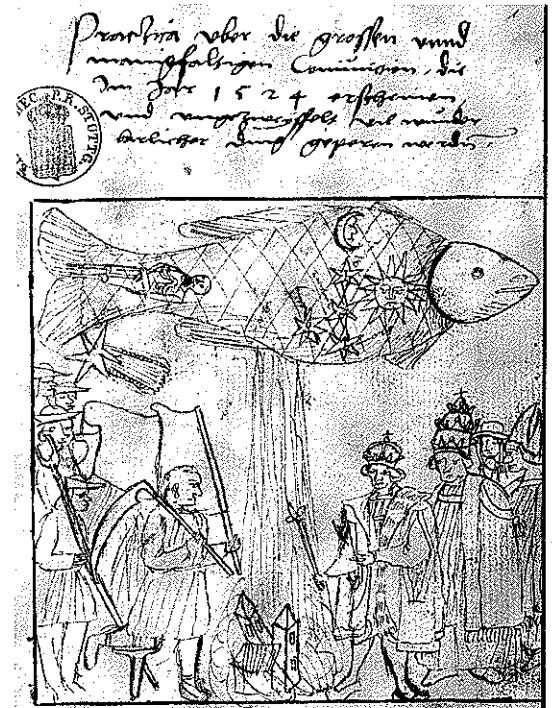 Practica vber die grossen vnnd
manigfaltigen Coniunction, die
Im Jar 1524 erscheinen,
vnd vngezweyffelt vil wunder
barlicher ding geperen werden.
P.R. STUTTG.